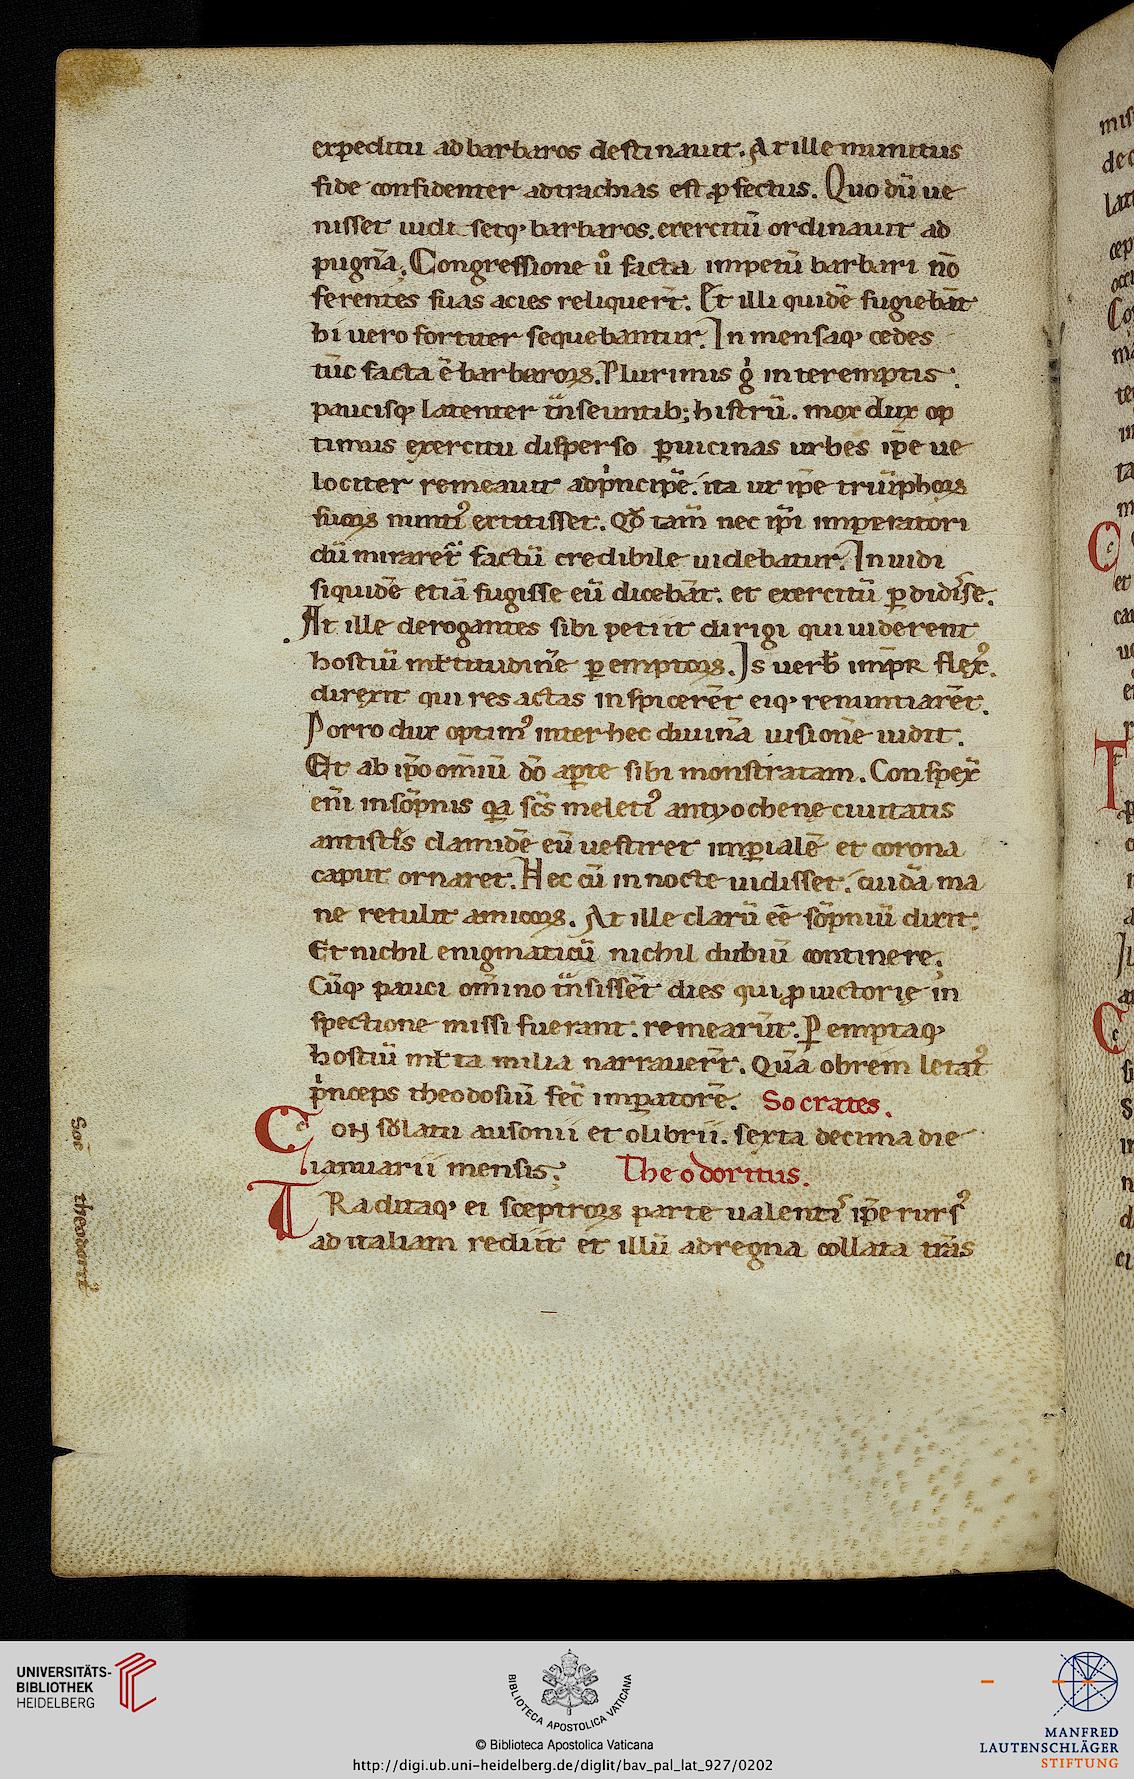 expeditu ad barbaros destinauit. At ille munitus
fide confidenter adtrachias est ꝓfectus. Quo dū ue
nisset uidissetqꝫ barbaros. exercitū ordinauit ad
pugnā. Congressione uͦ facta impetū barbari nō
ferentes suas acies reliquert̄. Et illi quidē fugiebāt
hi uero fortiter sequebantur. In mensaqꝫ cedes
tūc facta ē barbaroꝝ. Plurimis gͥ interemptis.
paucisqꝫ latenter tn̄seuntibꝫ histrū. mox dux op
timus exercitu disperso ꝑuicinas urbes ip̄e ue
lociter remeauit adpͥncipē. ita ut ip̄e triūphoꝝ
suoꝝ nuntiꝰ extitisset. Qđ tam̄ nec ip̄i imperatori
dū miraret᷑ factū credibile uidebatur. Inuidi
siquidē etiā fugisse eū dicebāt. et exercitū ꝑdidise.
At ille derogantes sibi petiit dirigi qui uiderent
hostiū ml̄titudinē ꝑemptoꝝ. Is uerb̄ imꝑr̄ flexꝰ.
direxit qui res actas inspicerēt eiqꝫ renuntiarēt.
Porro dux optimꝰ inter hec diuinā uisionē uidit.
Et ab ip̄o om̄iū dō aꝑte sibi monstratam. Conspex̄
eni̅ insōpnis qa̅ sc̄s meletiꝰ antyochene ciuitatis
antistes clamidē eū uestiret imꝑialē et corona
caput ornaret. Hec cū in nocte uidisset. cuidā ma
ne retulit amicoꝝ. At ille clarū eē sōpniū dixit.
Et nichil enigmaticū nichil dubiū continere.
Cūqꝫ pauci om̄ino tn̄sissēt dies qui ꝓ uictorię in
spectione missi fuerant. remearūt. ꝑemptaqꝫ
hostiū ml̄ta milia narrauert̄. Quā obrem letatꝰ
pͥnceps theodosiū fec̄ imꝑatorē. Socrates.
Consulatu ausonii et olibrii. sexta decima die
ianuarii mensis. Theodoritus.
TRaditaqꝫ ei sceptroꝝ parte ualentiͥ ip̄e rursꝰ
ad italiam rediit et illū adregna collata trās
Soc̄
theodoritꝰ
UNIVERSITÄTS-
BIBLIOTHEK
HEIDELBERG
BIBLIOTECA APOSTOLICA VATICANA
© Biblioteca Apostolica Vaticana
http://digi.ub.uni-heidelberg.de/diglit/bav_pal_lat_927/0202
MANFRED
LAUTENSCHLÄGER
STIFTUNG